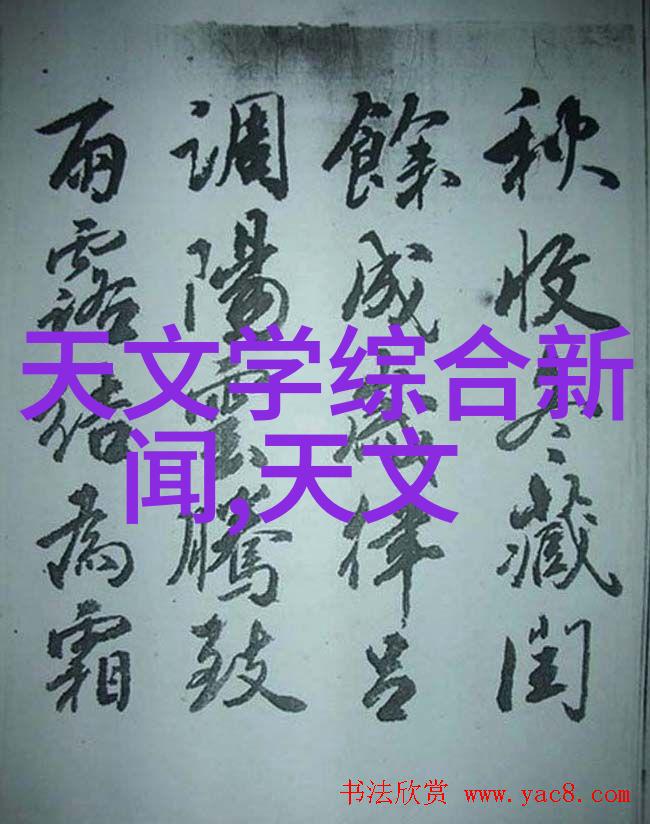 秋收冬藏閏
餘成歲律呂
調陽雲騰致
雨露結為霜
天文学综合新
闻,天文
书法欣赏 www.yac8.com